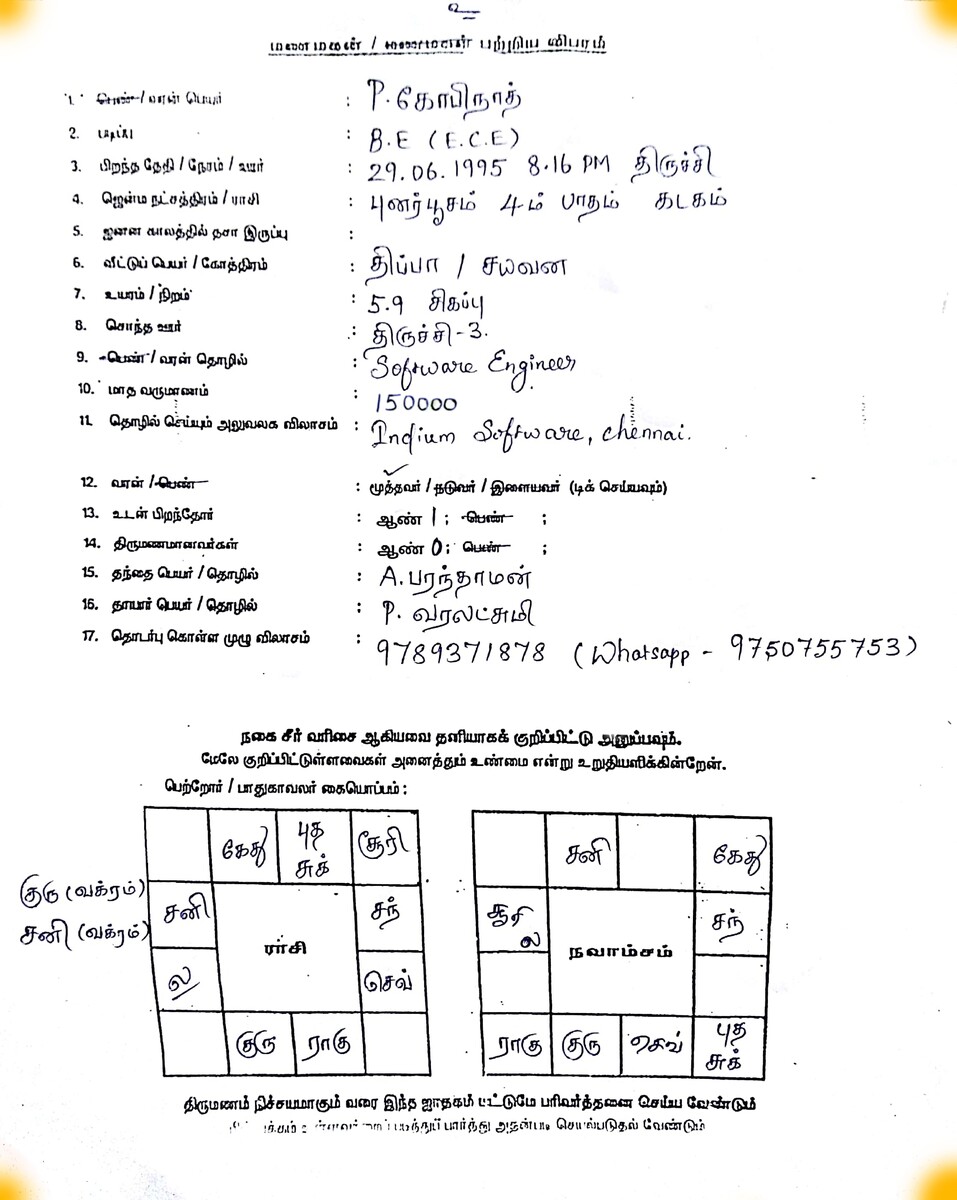 உ
மணமகன் / மணமகள் பற்றிய விபரம்
1. பெண் / வரன் பெயர் : P. கோபிநாத்
2. படிப்பு : B.E (E.C.E)
3. பிறந்த தேதி / நேரம் / ஊர் : 29.06.1995 8.16 PM திருச்சி
4. ஜென்ம நட்சத்திரம் / ராசி : புனர்பூசம் 4ம் பாதம் கடகம்
5. ஜனன காலத்தில் தசா இருப்பு :
6. வீட்டுப் பெயர் / கோத்திரம் : திப்பா / சயவன
7. உயரம் / நிறம் : 5.9 சிகப்பு
8. சொந்த ஊர் : திருச்சி-3.
9. பெண் / வரன் தொழில் : Software Engineer
10. மாத வருமானம் : 150000
11. தொழில் செய்யும் அலுவலக விலாசம் : Indium Software, Chennai.
12. வரன் / பெண் : மூத்தவர் / நடுவர் / இளையவர் (டிக் செய்யவும்)
13. உடன் பிறந்தோர் : ஆண் 1 ; பெண் ;
14. திருமணமானவர்கள் : ஆண் 0 ; பெண் ;
15. தந்தை பெயர் / தொழில் : A. பரந்தாமன்
16. தாயார் பெயர் / தொழில் : P. வரலட்சுமி
17. தொடர்பு கொள்ள முழு விலாசம் : 9789371878 (Whatsapp - 9750755753)
நகை சீர் வரிசை ஆகியவை தனியாகக் குறிப்பிட்டு அனுப்பவும்.
மேலே குறிப்பிட்டுள்ளவைகள் அனைத்தும் உண்மை என்று உறுதியளிக்கின்றேன்.
பெற்றோர் / பாதுகாவலர் கையொப்பம் :
கேது புத சுக் சூரி
குரு (வக்ரம்)
சனி (வக்ரம்)
சனி சந்
ராசி
ல செவ்
குரு ராகு
சனி கேது
சூரி ல சந்
நவாம்சம்
ராகு குரு செவ் புத சுக்
திருமணம் நிச்சயமாகும் வரை இந்த ஜாதகம் மட்டுமே பரிவர்த்தனை செய்ய வேண்டும்
பார்த்து அதன்படி செயல்படுதல் வேண்டும்